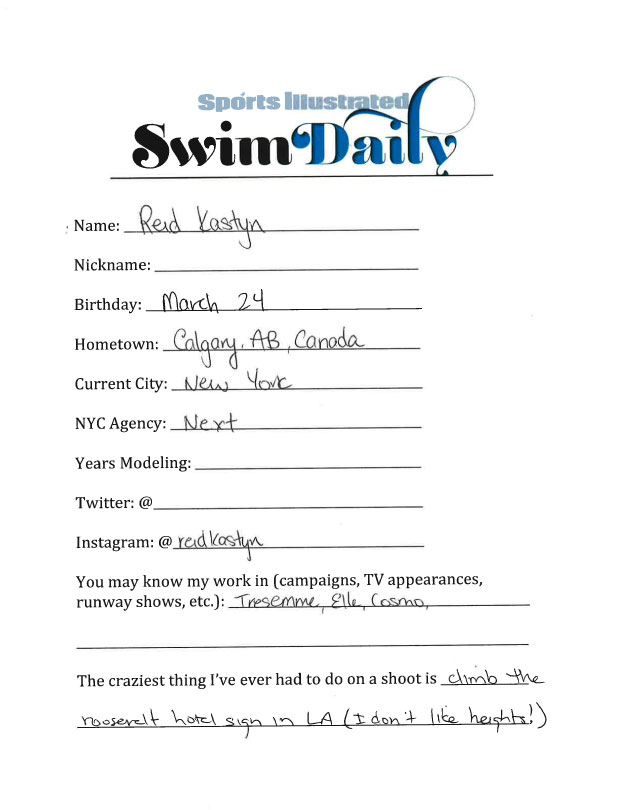 Sports Illustrated
Swim Daily
Name: Reid Kastyn
Nickname:
Birthday: March 24
Hometown: Calgary, AB, Canada
Current City: New York
NYC Agency: Next
Years Modeling:
Twitter: @
Instagram: @reidkastyn
You may know my work in (campaigns, TV appearances,
runway shows, etc.): Tresemme, Elle, Cosmo,
The craziest thing I've ever had to do on a shoot is climb the
roosevelt hotel sign in LA (I don't like heights!)